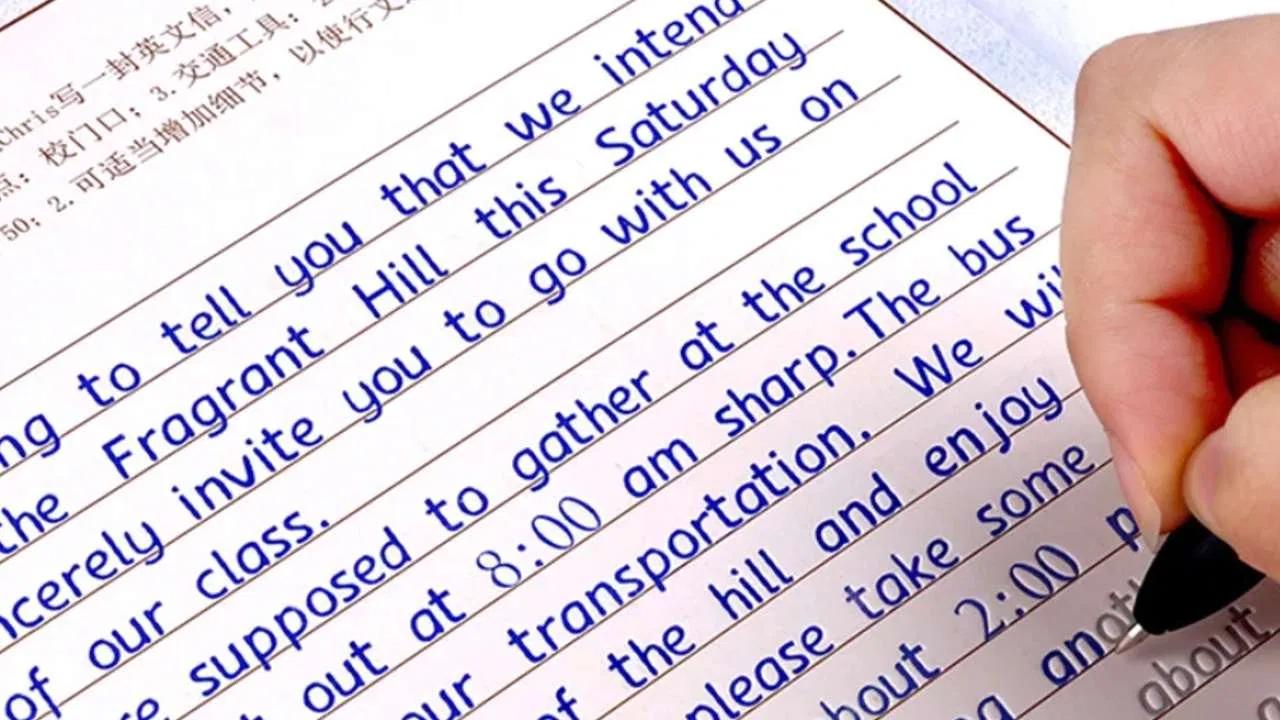 Chris写一封英文信，
点：校门口；3.交通工具：2
50；2.可适当增加细节，以使行文
ng to tell you that we intend
the Fragrant Hill this Saturday
ncerely invite you to go with us on
of our class.
re supposed to gather at the school
out at 8:00 am sharp. The bus
our transportation. We wil
of the hill and enjoy
please take some
bout 2:00 p
g anot
about